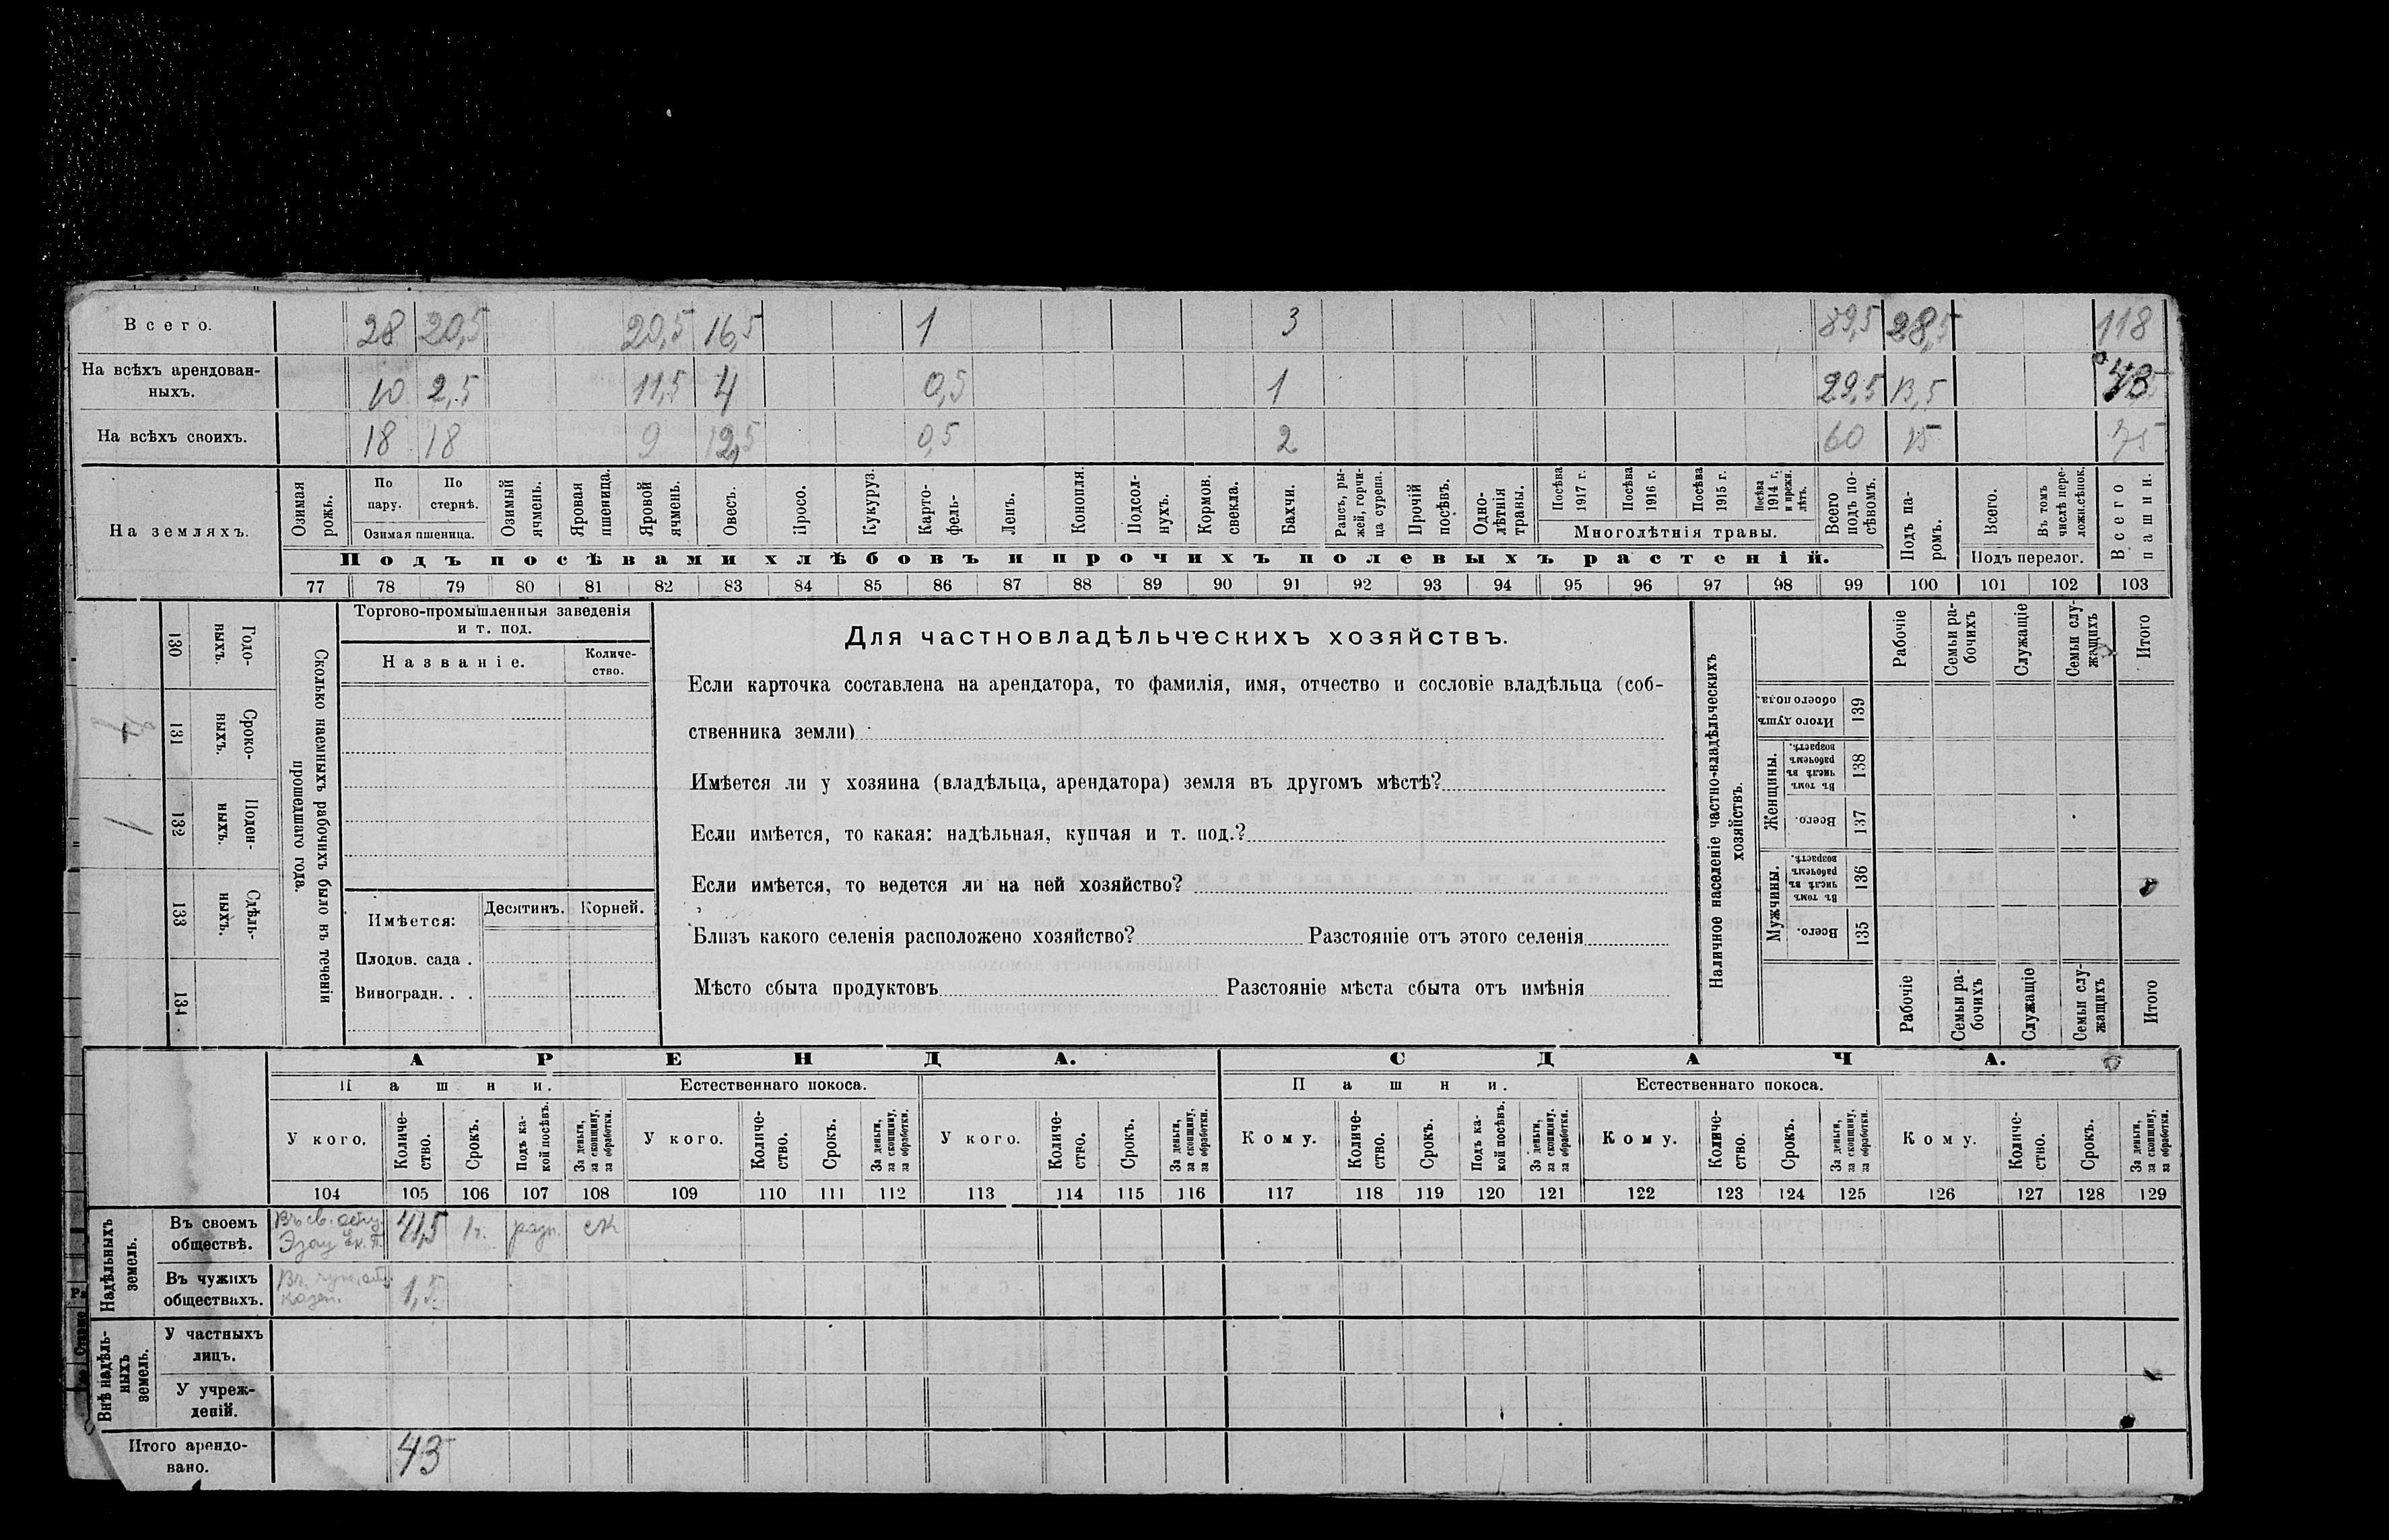 Всего. 28 20,5 20,5 16,5 1 3 89,5 28,5 118
На всѣхъ арендован-
ныхъ. 10 2,5 11,5 4 0,5 1 29,5 13,5 43
На всѣхъ своихъ. 18 18 9 12,5 0,5 2 60 15 75
На земляхъ.
Озимая рожь.
По пару.
По стернѣ.
Озимая пшеница.
Озимый ячмень.
Яровая пшеница.
Яровой ячмень.
Овесъ.
Просо.
Кукуруз.
Карто-
фель-
Ленъ.
Конопля.
Подсол-
нухъ.
Кормов.
свекла.
Бахчи.
Рапсъ, ры-
жей, горчи-
ца сурепа.
Прочій
посѣвъ.
Одно-
лѣтнія
травы.
Посѣва
1917 г.
Посѣва
1916 г.
Посѣва
1915 г.
Посѣва
1914 г.
и прежн.
лѣтъ.
Многолѣтнія травы.
Всего
подъ по-
сѣвомъ.
Подъ па-
ромъ.
Всего.
Въ томъ
числѣ пере-
ложн.сѣнок.
Подъ перелог.
Всего
пашни.
Подъ посѣвами хлѣбовъ и прочихъ полевыхъ растеній.
77 78 79 80 81 82 83 84 85 86 87 88 89 90 91 92 93 94 95 96 97 98 99 100 101 102 103
130 Годо-
выхъ.
131 Сроко-
выхъ.
132 Поден-
ныхъ.
1
133 Сдѣль-
ныхъ.
134
Сколько наемныхъ рабочихъ было въ теченіи
прошедшаго года.
Торгово-промышленныя заведенія
и т. под.
Названіе.
Количе-
ство.
Имѣется:
Десятинъ. Корней.
Плодов. сада .
Виноградн. . .
Для частновладѣльческихъ хозяйствъ.
Если карточка составлена на арендатора, то фамилія, имя, отчество и сословіе владѣльца (соб-
ственника земли)
Имѣется ли у хозяина (владѣльца, арендатора) земля въ другомъ мѣстѣ?
Если имѣется, то какая: надѣльная, купчая и т. под.?
Если имѣется, то ведется ли на ней хозяйство?
Близъ какого селенія расположено хозяйство? Разстояніе отъ этого селенія
Мѣсто сбыта продуктовъ Разстояніе мѣста сбыта отъ имѣнія
Наличное населеніе частно-владѣльческихъ
хозяйствъ.
Рабочіе
Семьи ра-
бочихъ
Служащіе
Семьи слу-
жащихъ
Итого
Итого душъ
обоего пола.
139
Женщины.
Въ томъ
числѣ въ
рабочемъ
возрастѣ.
138
Всего.
137
Мужчины.
Въ томъ
числѣ въ
рабочемъ
возрастѣ.
136
Всего.
135
Рабочіе
Семьи ра-
бочихъ
Служащіе
Семьи слу-
жащихъ
Итого
АРЕНДА. СДАЧА.
Пашни. Естественнаго покоса. Пашни. Естественнаго покоса.
У кого.
Количе-
ство.
Срокъ.
Подъ ка-
кой посѣвъ.
За деньги,
за скопщину,
за обработки.
У кого.
Количе-
ство.
Срокъ.
За деньги,
за скопщину,
за обработки.
У кого.
Количе-
ство.
Срокъ.
За деньги,
за скопщину,
за обработки.
Кому.
Количе-
ство.
Срокъ.
Подъ ка-
кой посѣвъ.
За деньги,
за скопщину,
за обработки.
Кому.
Количе-
ство.
Срокъ.
За деньги,
за скопщину,
за обработки.
Кому.
Количе-
ство.
Срокъ.
За деньги,
за скопщину,
за обработки.
104 105 106 107 108 109 110 111 112 113 114 115 116 117 118 119 120 121 122 123 124 125 126 127 128 129
Надѣльныхъ
земель.
Въ своемъ
обществѣ. Въ св. 41,5 1 г. разн. ск
Въ чужихъ
обществахъ. Въ казен. 1,5
Внѣ надѣль-
ныхъ
земель.
У частныхъ
лицъ.
У учреж-
деній.
Итого арендо-
вано. 43